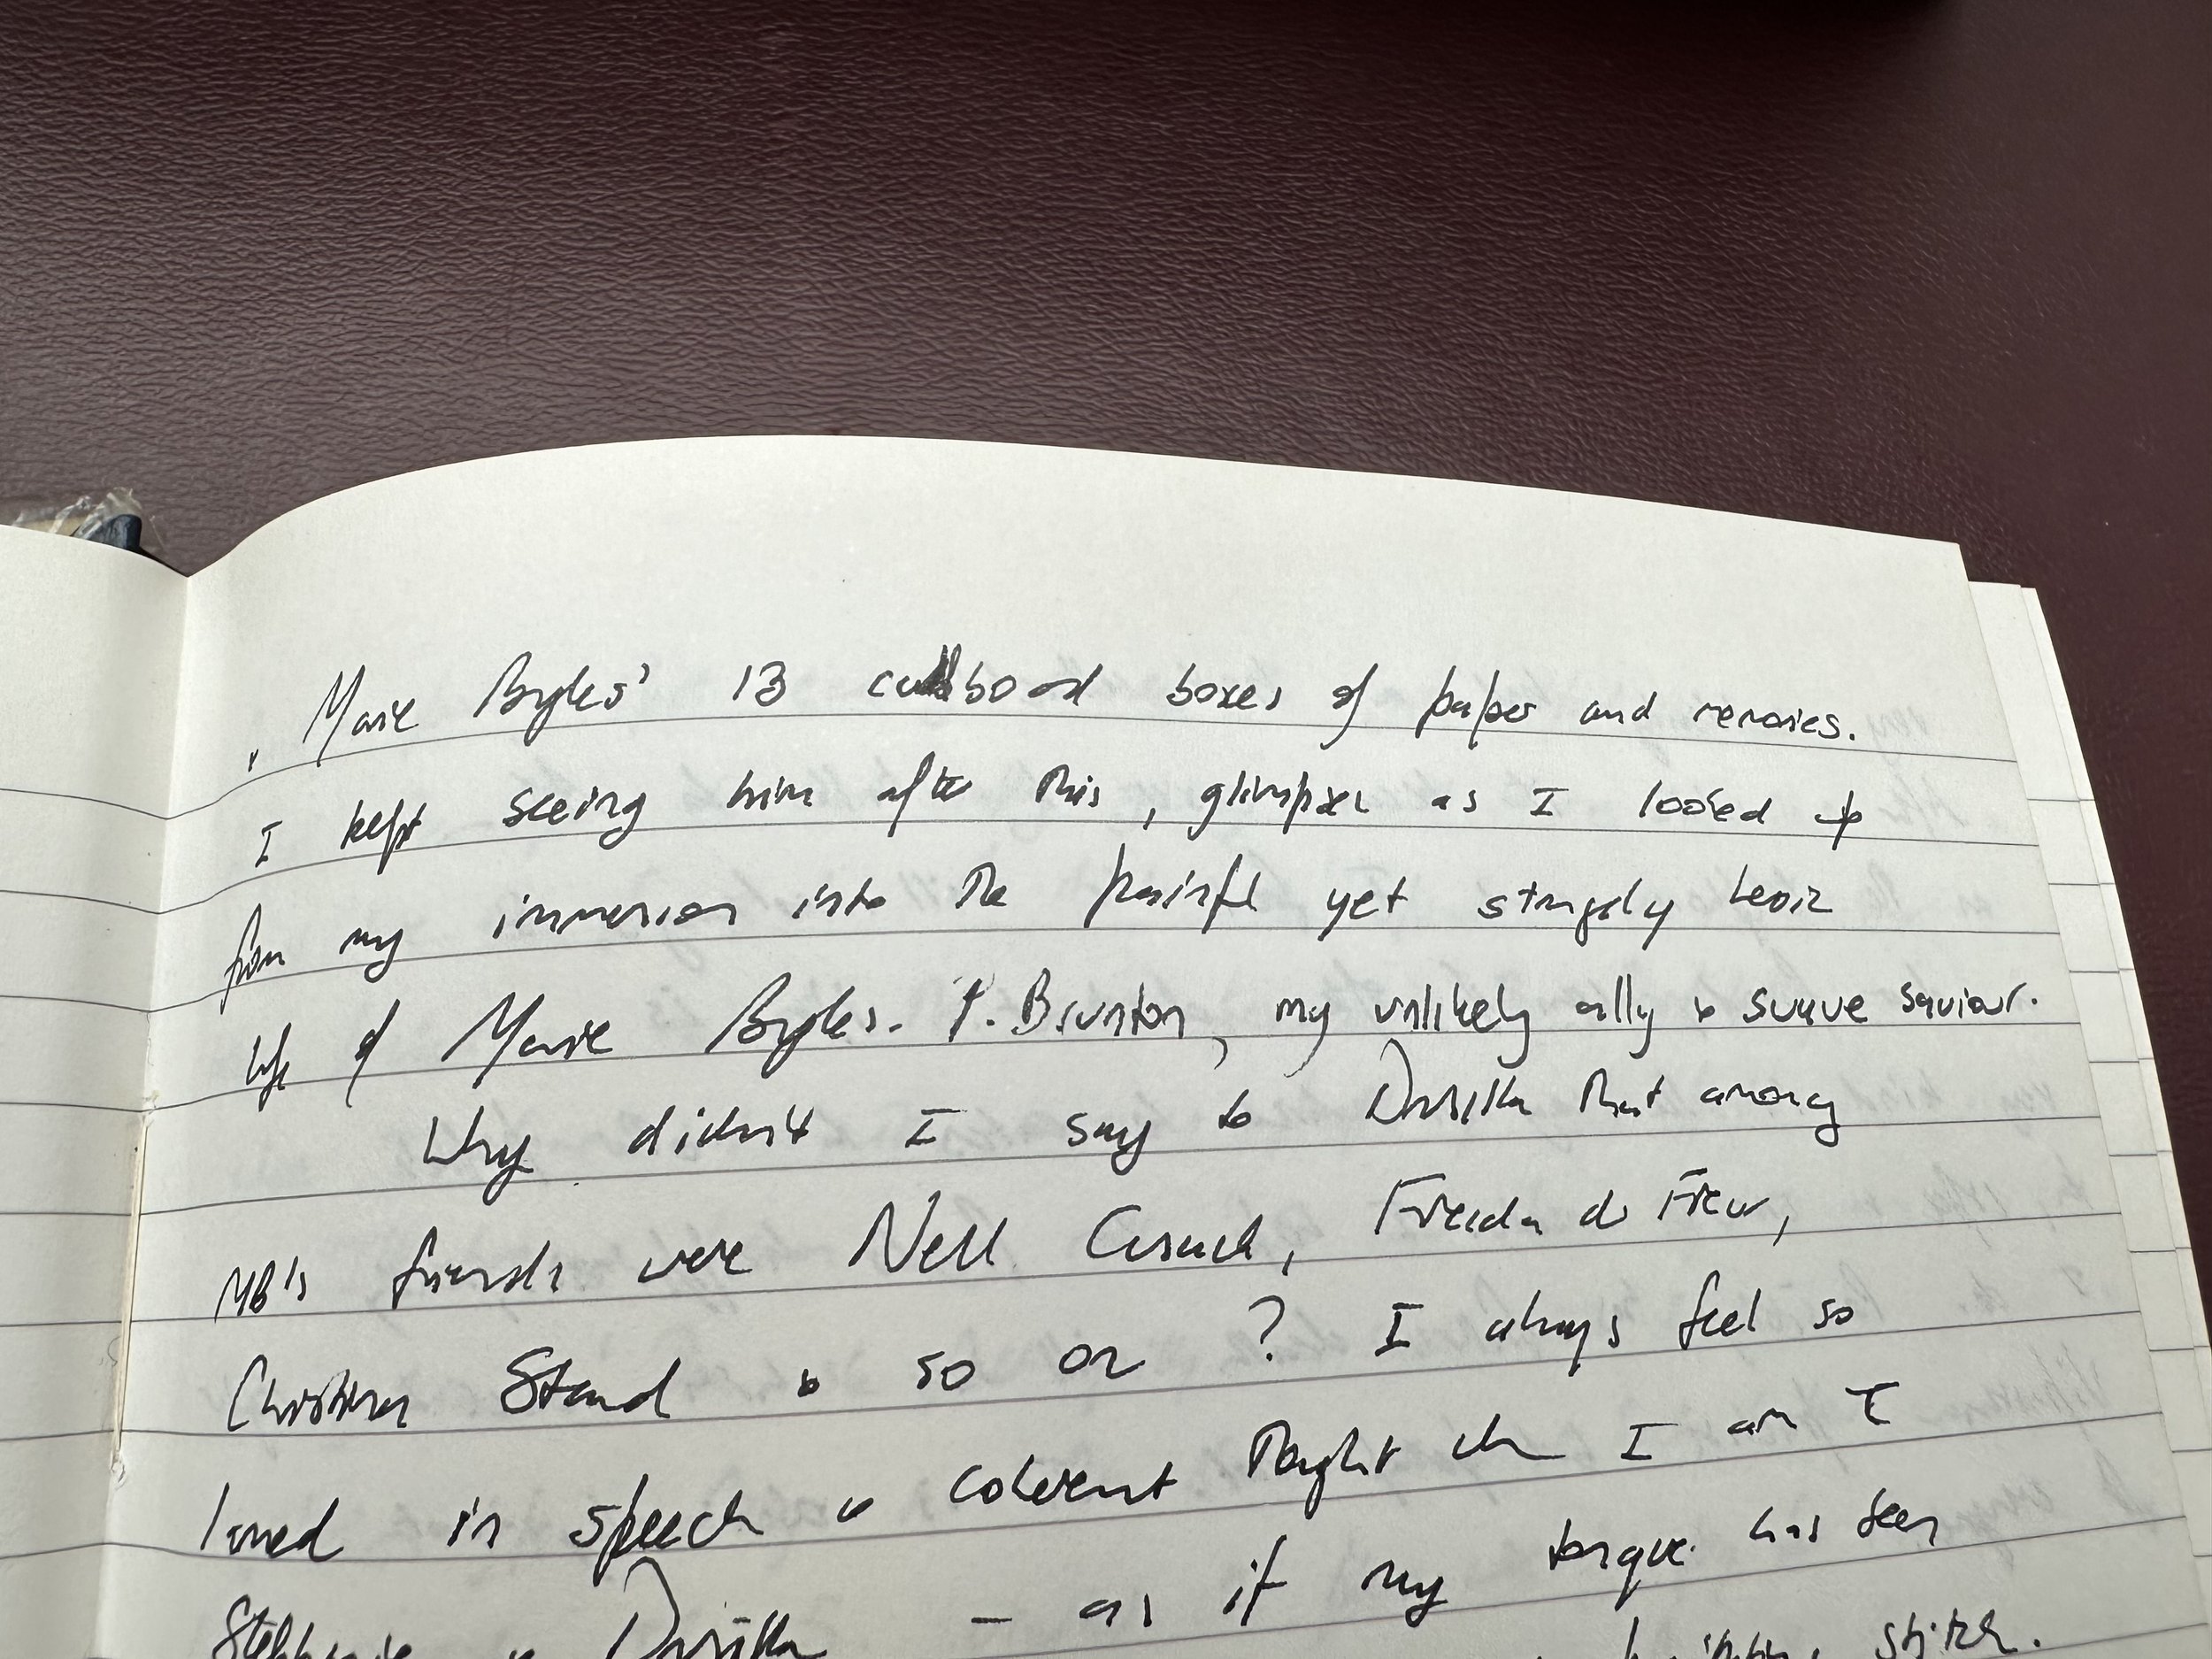 , Marie Byles' 13 cardboard boxes of papers and memories.
I kept seeing him after this, glimpses as I looked up
from my immersion into the painful yet strangely heroic
life of Marie Byles. P. Brunton, my unlikely ally & suave saviour.
Why didn't I say to Drusilla that among
MB's friends were Nell Freeda du Frew,
Christina Stead & so on ? I always feel so
in speech & coherent thought when I am
Stephanie Drusilla – as if my tongue has been
stitch.